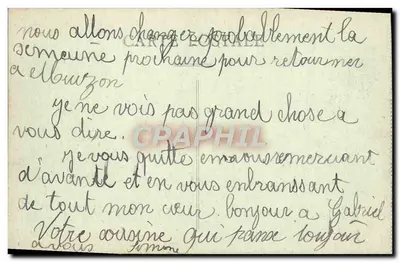 nous allons changer probablement la
CARTE POSTALE
semeune prochaine pour retourner
a
je ne vois pas grand chose a
vous dire.
PHILCARTO
je vous quitte en vous remerciant
d'avance et en vous enbrassant
de tout mon cœur. bonjour a Gabriel
Votre cousine qui panse toujour
a vous Simone